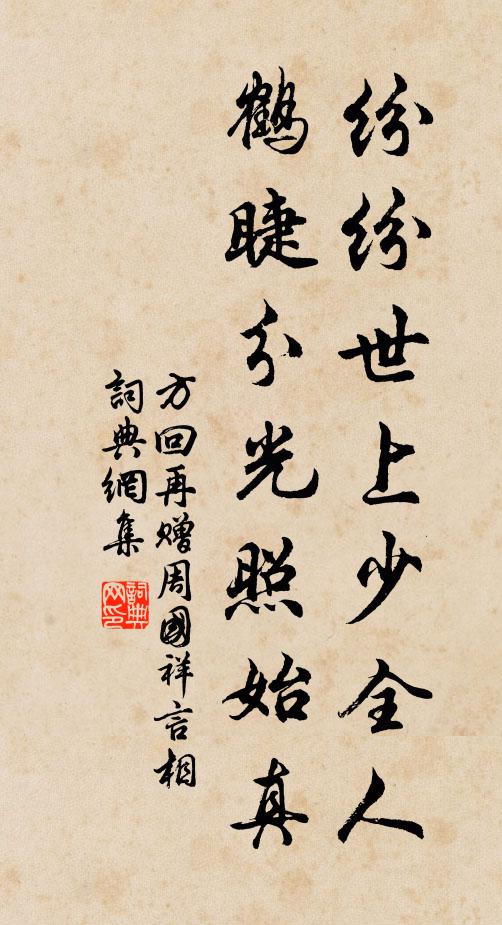 纷纷世上少全人
鹤睫分光照始真
方回再赠周國祥言相
詞典網集
詞典
网印